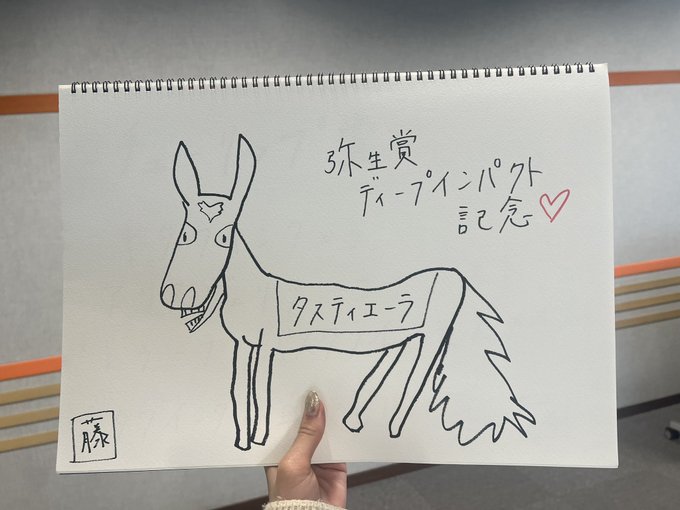 弥生賞
ディープインパクト
記念
タスティエーラ
藤